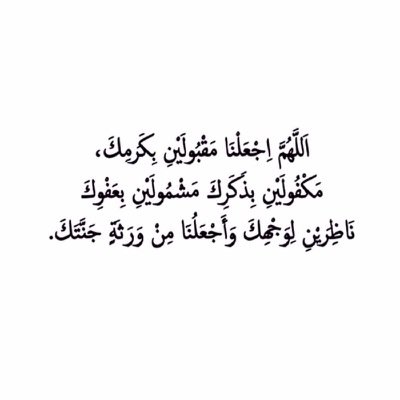 اَللَّهُمَّ اِجْعَلْنَا مَقْبُولَيْنِ بِكَرَمِكَ،
مَكْفُولَيْنِ بِذَكَرِكَ مَشْمُولَيْنِ بِعَفْوِكَ
نَاظِرِيْنِ لِوَجْهِكَ وَأَجْعَلُنَا مِنْ وَرَثَةٍ جَنَّتَكَ.